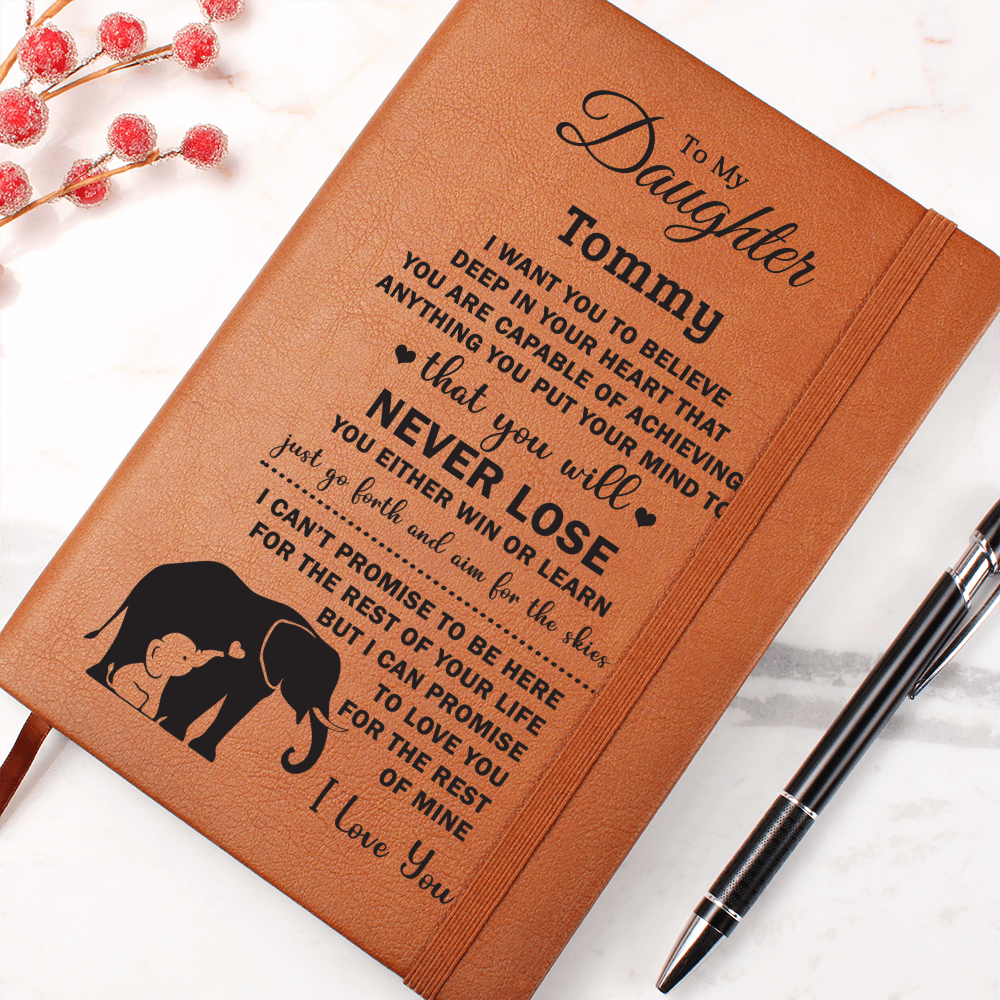 To My
Daughter
Tommy
I WANT YOU TO BELIEVE
DEEP IN YOUR HEART THAT
YOU ARE CAPABLE OF ACHIEVING
ANYTHING YOU PUT YOUR MIND TO
that you will
NEVER LOSE
YOU EITHER WIN OR LEARN
just go forth and aim for the skies
I CAN'T PROMISE TO BE HERE
FOR THE REST OF YOUR LIFE
BUT I CAN PROMISE
TO LOVE YOU
FOR THE REST
OF MINE
I Love You